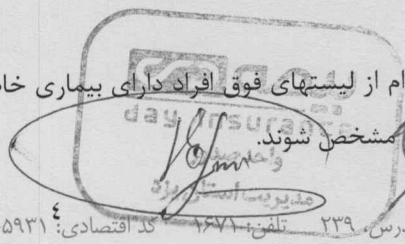 ام از لیستهای فوق افراد دارای بیماری خا
بیمه
day insurance
مشخص شوند.
واحد صدور
مدیریت استان یزد
درس، ۲۳۹ تلفن: ۱۶۷۱ کد اقتصادی: ۵۹۳۱